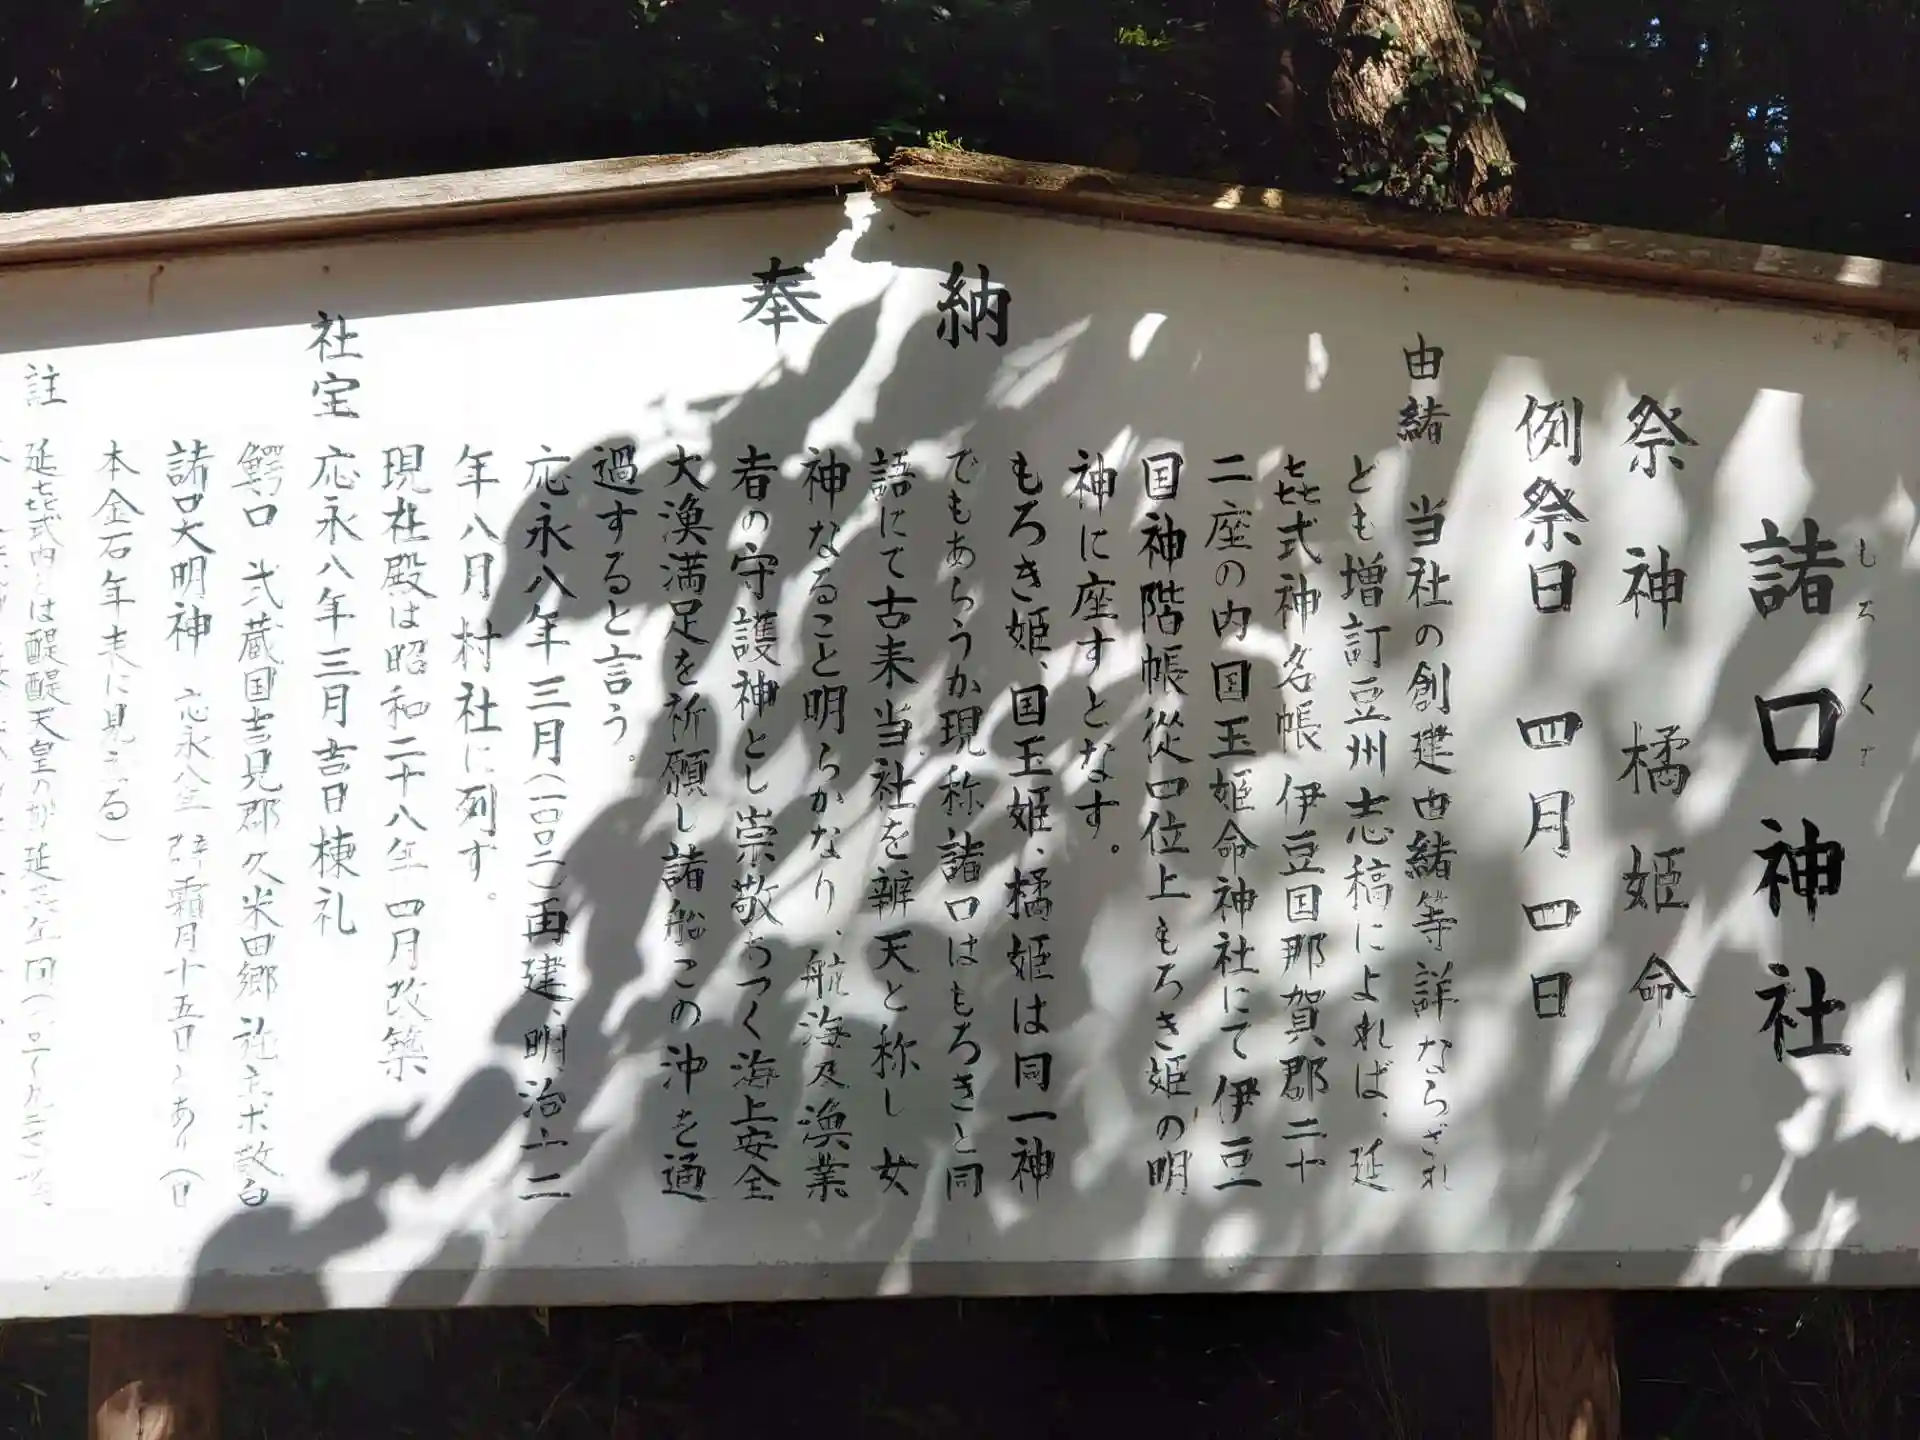 奉納
諸口神社
しろくち
祭神 橘姫命
例祭日 四月四日
由緒 当社の創建由緒等詳ならざれ
とも増訂豆州志稿によれば、延
㐂式神名帳 伊豆国那賀郡二十
二座の内国玉姫命神社にて伊豆
国神階帳従四位上もろき姫の明
神に座すとなす。
もろき姫、国玉姫、橘姫は同一神
でもあらうか現称諸口はもろきと同
語にて古来当社を辨天と称し女
神なること明らかなり、航海及漁業
者の守護神とし崇敬あつく海上安全
大漁満足を祈願し諸船この沖を通
過すると言う。
応永八年三月(一四〇二)再建、明治十二
年八月村社に列す。
現社殿は昭和二十八年四月改築
社宝 応永八年三月吉日棟礼
鰐口 武蔵国吉見郡久米田郷 敬白
諸口大明神 応永八年 霜月十五日とあり(日
本金石年表に見える)
註 延㐂式内とは醍醐天皇の